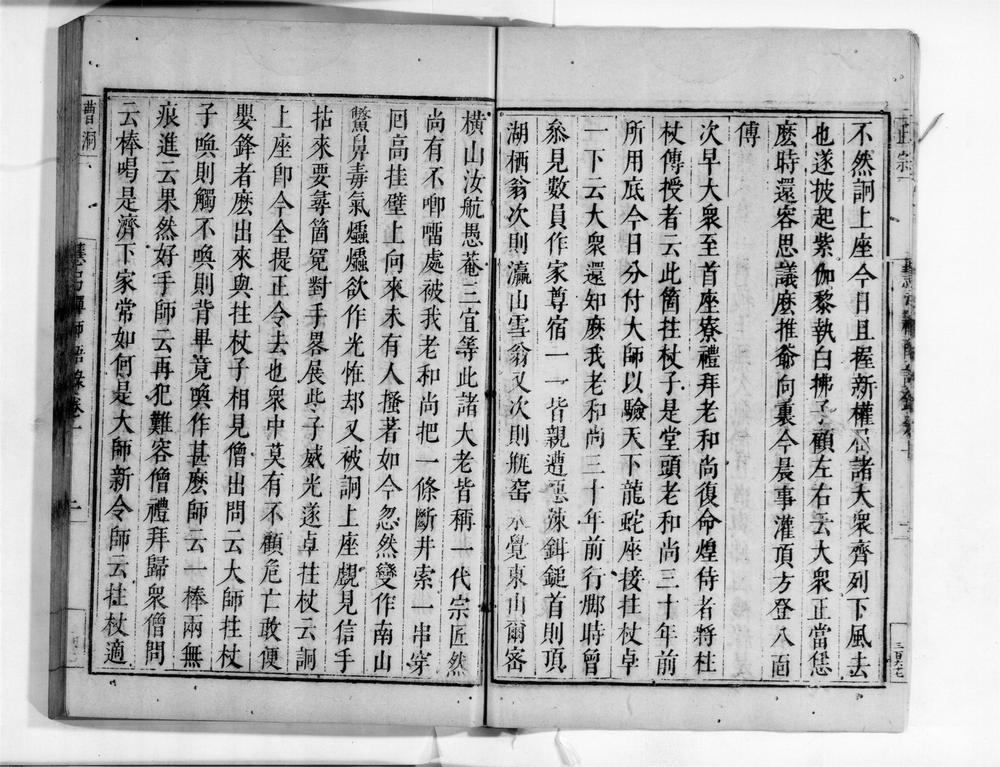 不然詗上座今日且握新權令諸大衆齊列下風去
也遂披起紫伽黎執白拂子顧左右云大衆正當恁
麼時還容思議麼推爺向裏今晨事灌頂方登八面
傅
次早大衆至首座寮禮拜老和尚復命煌侍者將柱
杖傳授者云此箇拄杖子是堂頭老和尚三十年前
所用底今日分付大師以驗天下龍蛇座接拄杖卓
一下云大衆還知麽我老和尚三十年前行脚時曾
叅見數員作家尊宿一一皆親遭惡辣鉗鎚首則頂
湖栖翁次則瀛山雪翁又次則瓶窑 覺東山爾密
橫山汝航愚菴三宜等此諸大老皆稱一代宗匠然
尚有不唧㗰處被我老和尚把一條斷井索一串穿
囘高挂壁上向來未有人搔著如今忽然變作南山
鱉鼻毒氣爞爞欲作光恠却又被詗上座覷見信手
拈來要尋箇冤對手畧展些子威光遂卓拄杖云詗
上座卽今全提正令去也衆中莫有不顧危亡敢便
嬰鋒者麽出來與拄杖子相見僧出問云大師拄杖
子喚則觸不喚則背畢竟喚作甚麽師云一棒兩無
痕進云果然好手師云再犯難容僧禮拜歸衆僧問
云棒喝是濟下家常如何是大師新令師云拄杖適
曹洞
語錄卷一
二